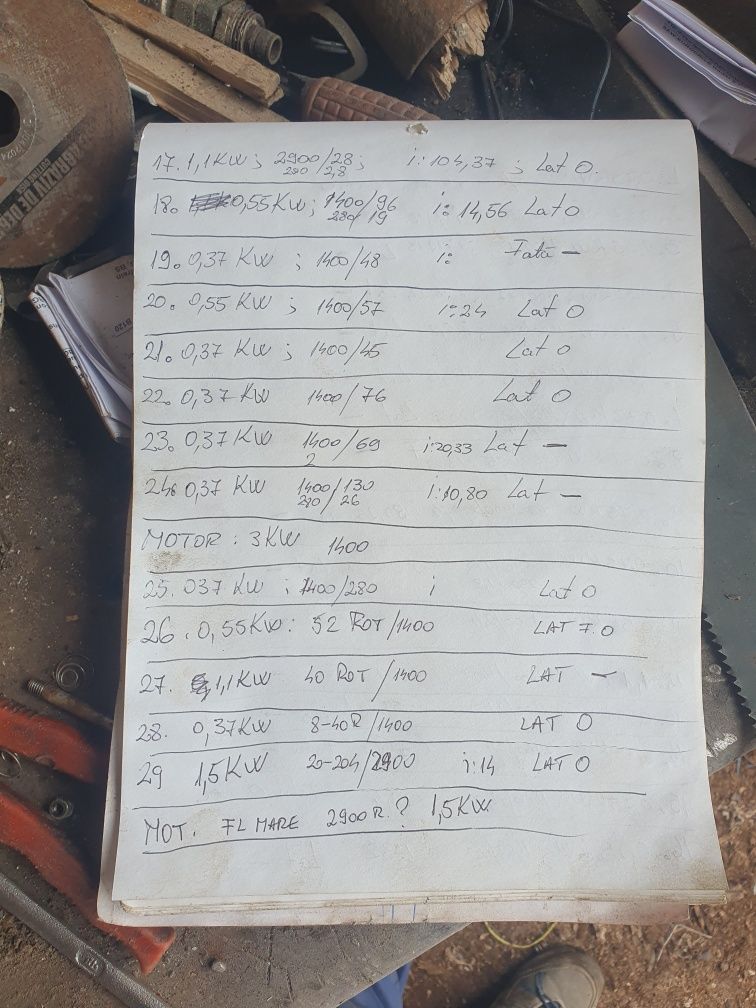 17. 1,1 KW ; 2900/28 ; i: 104,37 ; Lat O.
290 2,8
18. 0,55 KW ; 1400/96 i: 14,56 Lat O
280/19
19. 0,37 KW ; 1400/48 i: Fată —
20. 0,55 KW ; 1400/57 i: 24 Lat O
21. 0,37 KW ; 1400/45 Lat O
22. 0,37 KW 1400/76 Lat O
23. 0,37 KW 1400/69 i: 20,33 Lat —
2
24. 0,37 KW 1400/130 i: 10,80 Lat —
280 26
MOTOR : 3 KW 1400
25. 037 KW ; 1400/280 i Lat O
26. 0,55 KW : 52 ROT/1400 LAT F.O
27. 1,1 KW 40 ROT/1400 LAT —
28. 0,37 KW 8-40R/1400 LAT O
29 1,5 KW 20-204/2900 i: 14 LAT O
MOT. FL MARE 2900 R. ? 1,5 KW